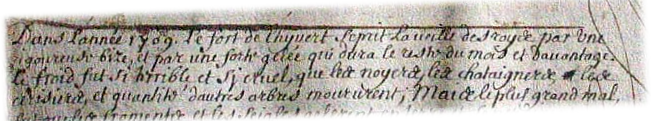 Dans l'année 1709. le fort de l'hyvert se mit la veille des roys par une
rigoureuse bize, et par une forte gelée qui dura le reste du mois et davantage.
le froid fut si hrrible et si cruel, que les noyers, les chataigners les
cerisiers, et quantité d'autres arbres moururent, Mais le plus grand mal,